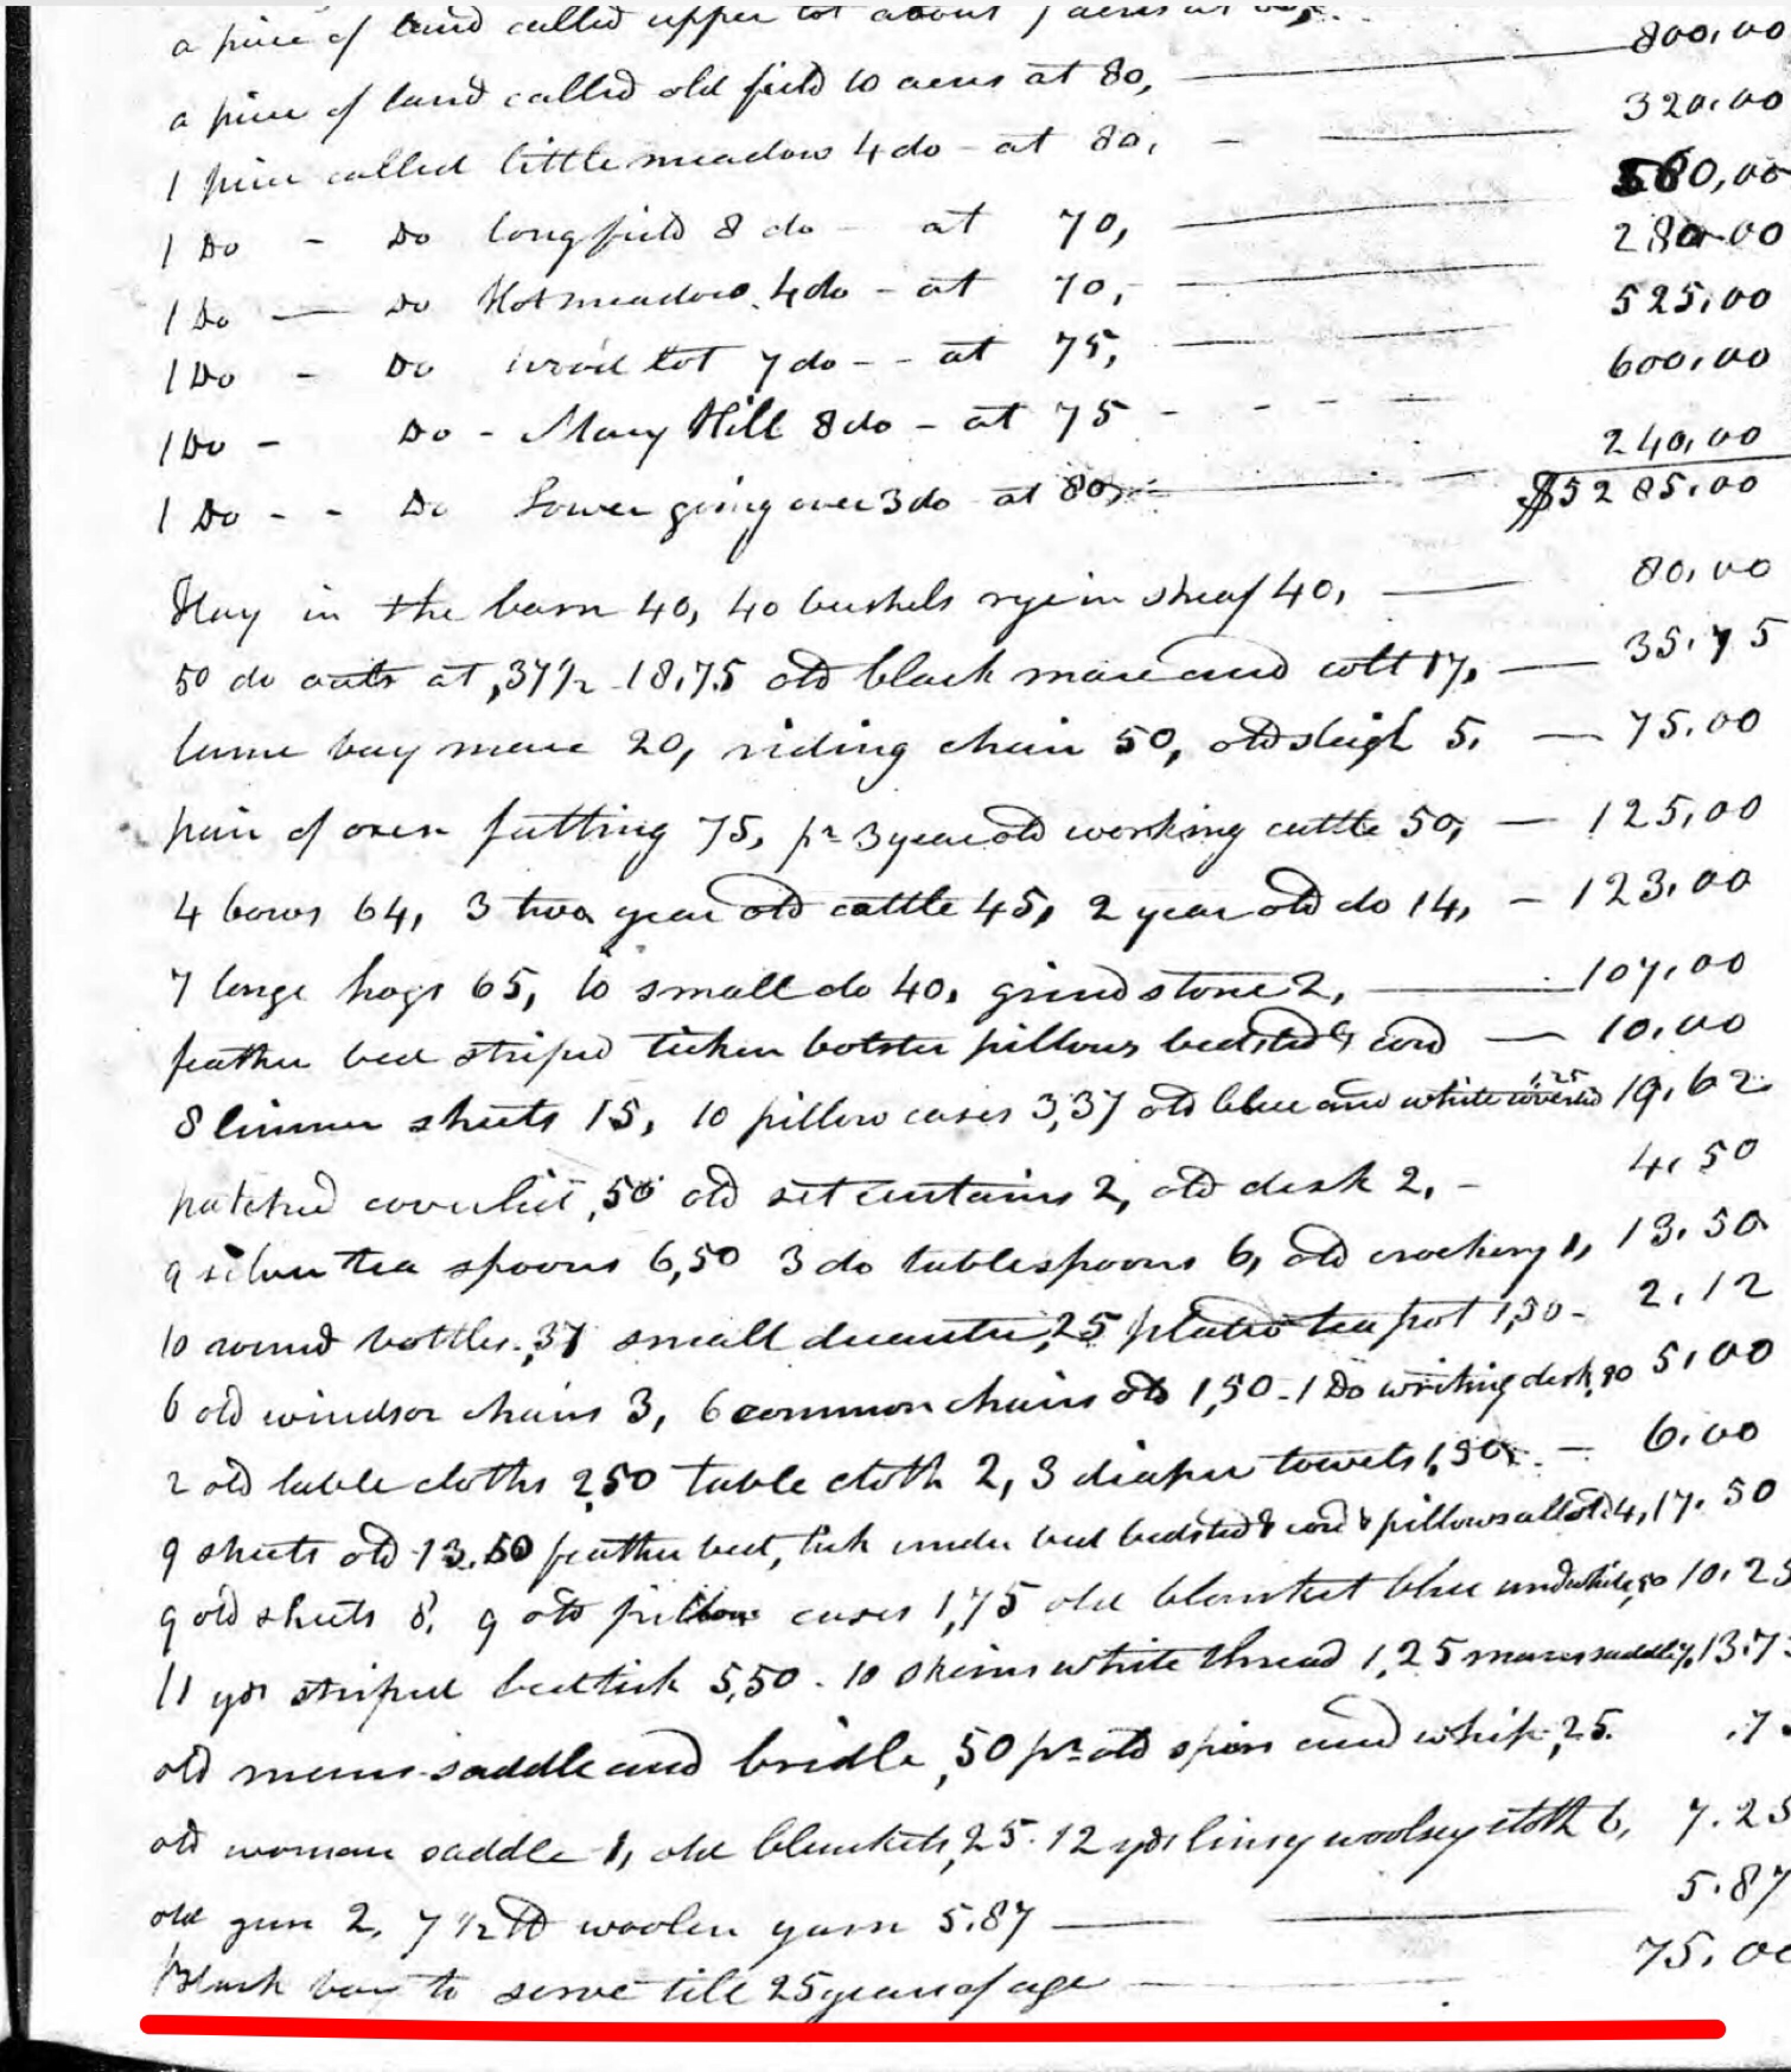 a piece of land called upper lot about 7 acres at
a piece of land called old field 10 acres at 80, 800,00
1 piece called little meadow 4 do - at 80, - 320,00
1 Do - Do long field 8 do - at 70, 560,00
1 Do - Do Hot meadow 4 do - at 70, 280,00
1 Do - Do wood lot 7 do - - at 75, 525,00
1 Do - Do - Mary Hill 8 do - at 75 - - - - 600,00
1 Do - - Do Lower going over 3 do at 80, 240,00
$5285,00
Hay in the barn 40, 40 bushels rye in sheaf 40, 80,00
50 do oats at ,37 1/2 18,75 old black mare and colt 17, 35.75
lame bay mare 20, riding chair 50, old sleigh 5. 75.00
pair of oxen fatting 75, pr 3 year old working cattle 50, 125,00
4 cows 64, 3 two year old cattle 45, 2 year old do 14, 123.00
7 large hogs 65, 10 small do 40, grind stone 2, 107,00
feather bed striped ticken bolster pillows bedsted & cord 10,00
8 linnen sheets 15, 10 pillow cases 3,37 old blue and white coverlid 1,25 19,62
patched coverlid ,50 old set curtains 2, old desk 2, - 4,50
9 silver tea spoons 6,50 3 do tablespoons 6, old crockery 1, 13.50
10 round bottles ,37 small decanter ,25 plated tea pot 1,50 - 2,12
6 old windsor chairs 3, 6 common chairs old 1,50 - 1 Do writing desk ,50 5,00
2 old table cloths 2,50 table cloth 2, 3 diaper towels 1,50 - 6.00
9 sheets old 13.50 feather bed, tick under bed bedsted & cord & pillows all old 4, 17.50
9 old sheets 8, 9 old pillow cases 1,75 old blanket blue and white ,50 10.25
11 yds striped bedtick 5,50 - 10 skeins white thread 1,25 saddle 7, 13.75
old mens saddle and bridle ,50 pr old spurs and whip ,25. .75
old woman saddle 1, old blankets ,25 . 12 yds linsy woolsey cloth 6, 7.25
old gun 2, 7 1/2 lb woolen yarn 5.87 5.87
Black boy to serve till 25 years of age 75,00